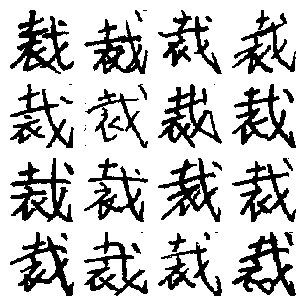 裁裁裁裁
裁裁裁裁
裁裁裁裁
裁裁裁裁